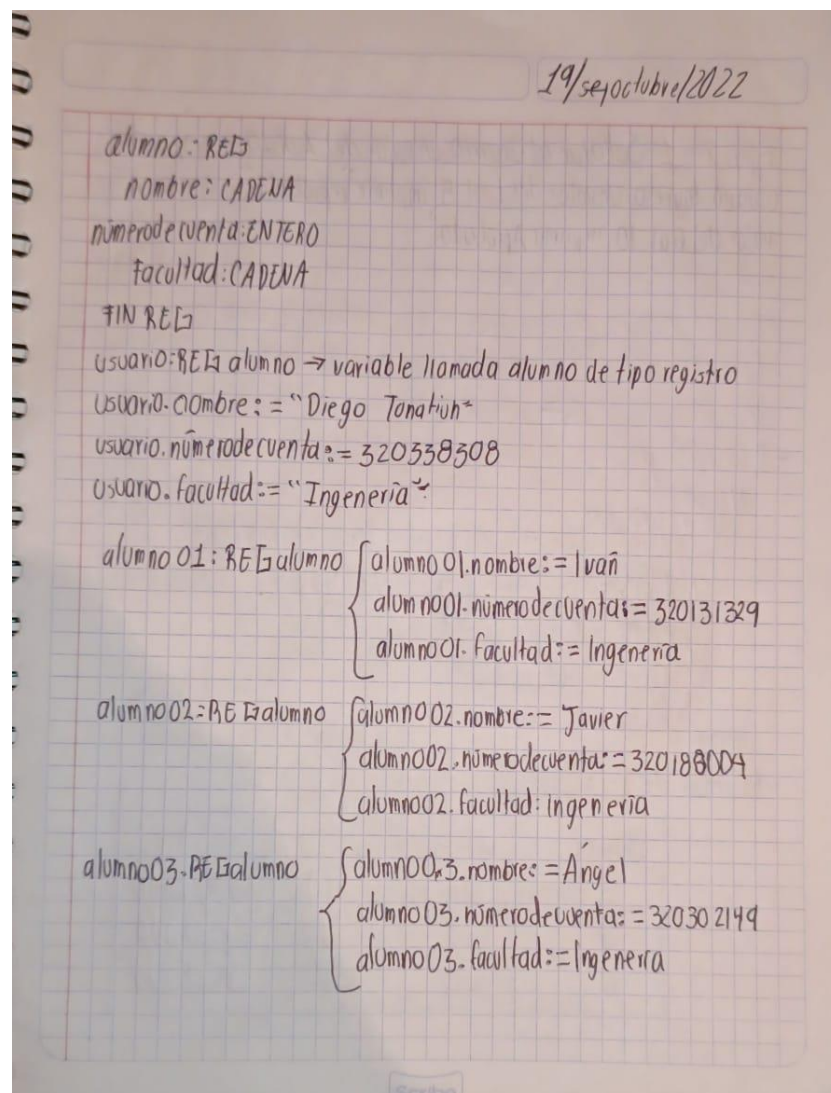 19/sejoctubre/2022
alumno: REG
nombre: CADENA
númerodecuenta:ENTERO
facultad:CADENA
FIN REG
usuario:REG alumno → variable llamada alumno de tipo registro
usuario.nombre:="Diego Tonatiuh"
usuario.númerodecuenta:=320338308
usuario.facultad:="Ingenería"
alumno01:REGalumno
alumno01.nombre:=Ivañ
alumno01.númerodecuenta:=320131329
alumno01.facultad:=Ingenería
alumno02:REGalumno
alumno02.nombre:=Javier
alumno02.númerodecuenta:=320188004
alumno02.facultad:ingenería
alumno03.REGalumno
alumno0.3.nombre:=Ángel
alumno03.númerodecuenta:=320302149
alumno03.facultad:=Ingenería